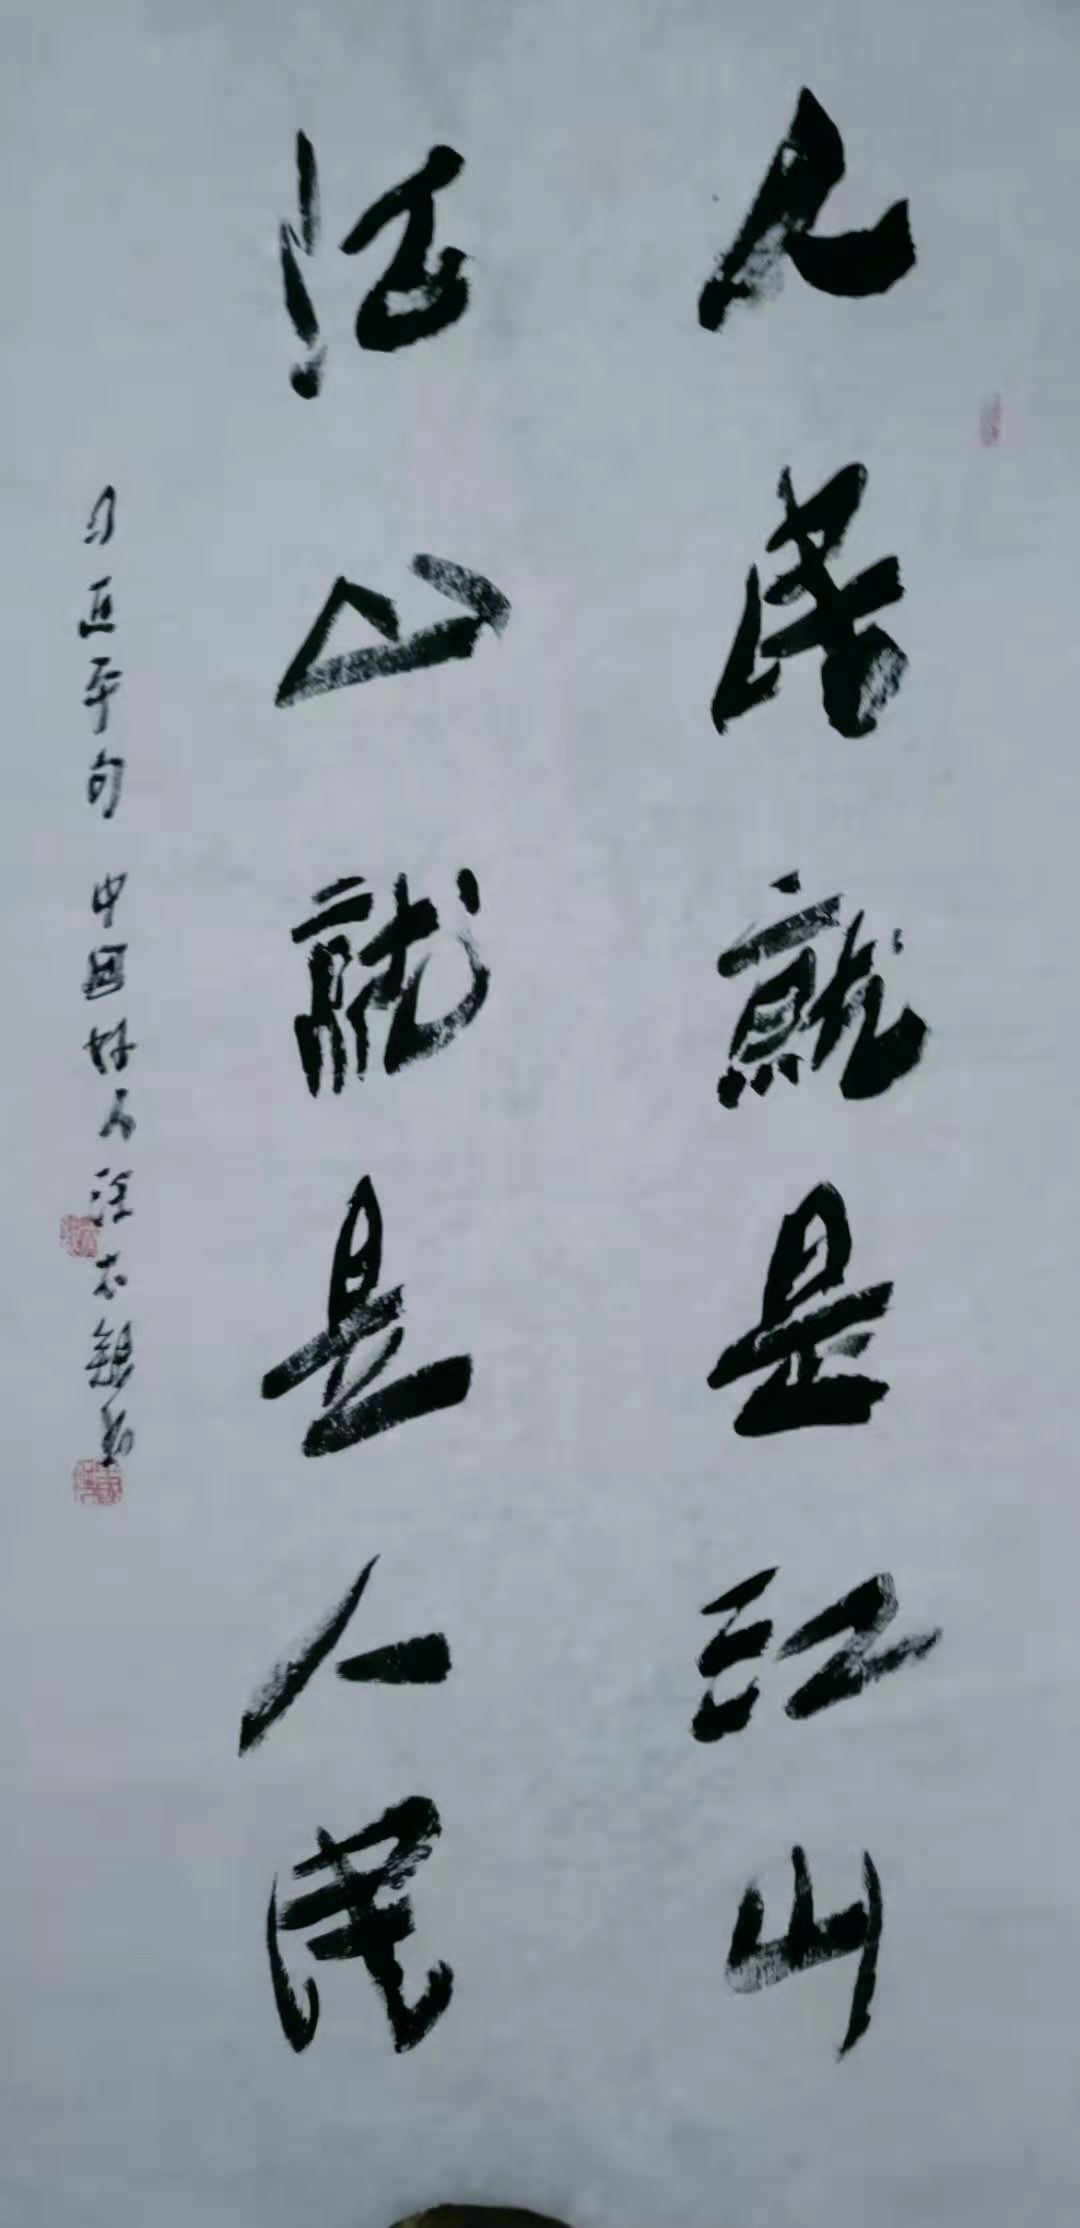 人民就是江山
江山就是人民
习近平句 中国好人汪衣银书